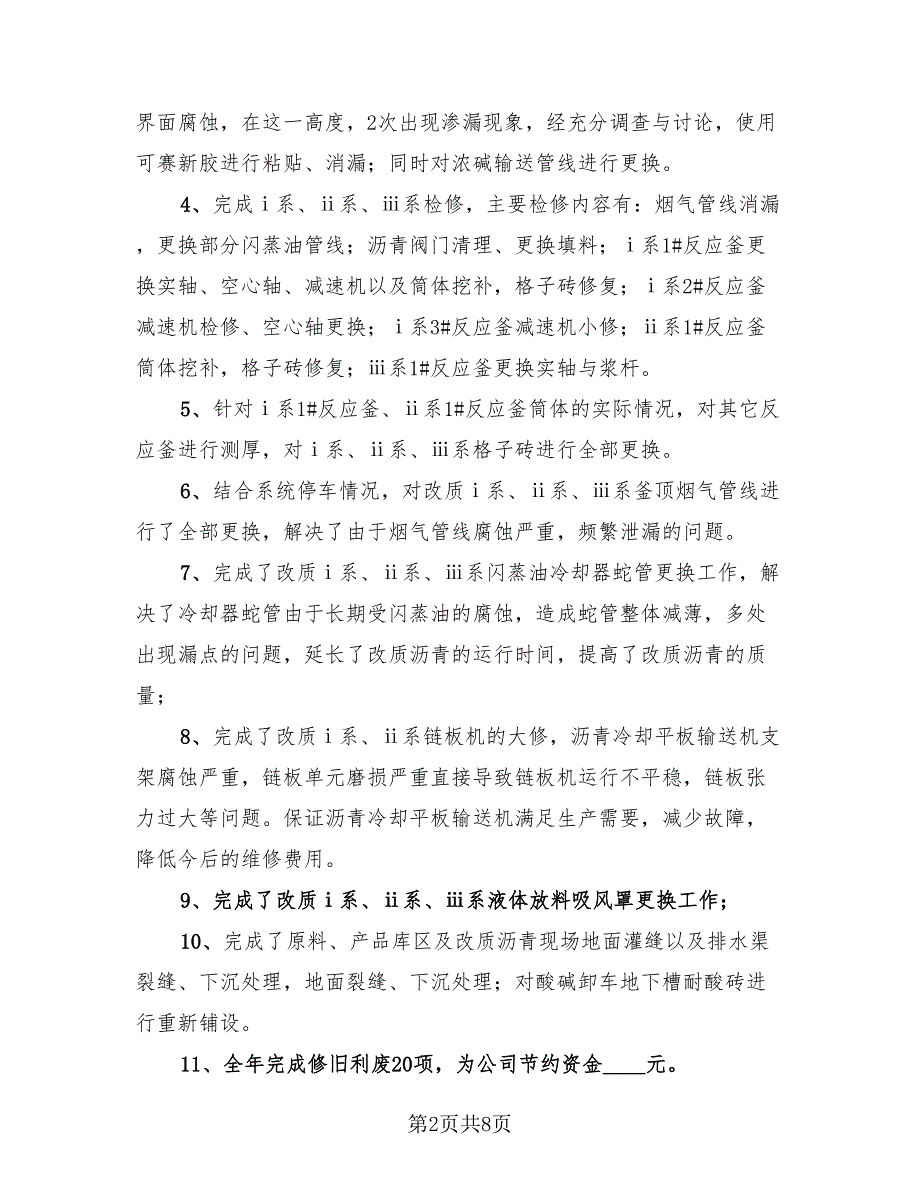 界面腐蚀，在这一高度，2次出现渗漏现象，经充分调查与讨论，使用
可赛新胶进行粘贴、消漏；同时对浓碱输送管线进行更换。
4、完成ⅰ系、ⅱ系、ⅲ系检修，主要检修内容有：烟气管线消漏
，更换部分闪蒸油管线；沥青阀门清理、更换填料；ⅰ系1#反应釜更
换实轴、空心轴、减速机以及筒体挖补，格子砖修复；ⅰ系2#反应釜
减速机检修、空心轴更换；ⅰ系3#反应釜减速机小修；ⅱ系1#反应釜
筒体挖补，格子砖修复；ⅲ系1#反应釜更换实轴与浆杆。
5、针对ⅰ系1#反应釜、ⅱ系1#反应釜筒体的实际情况，对其它反
应釜进行测厚，对ⅰ系、ⅱ系、ⅲ系格子砖进行全部更换。
6、结合系统停车情况，对改质ⅰ系、ⅱ系、ⅲ系釜顶烟气管线进
行了全部更换，解决了由于烟气管线腐蚀严重，频繁泄漏的问题。
7、完成了改质ⅰ系、ⅱ系、ⅲ系闪蒸油冷却器蛇管更换工作，解
决了冷却器蛇管由于长期受闪蒸油的腐蚀，造成蛇管整体减薄，多处
出现漏点的问题，延长了改质沥青的运行时间，提高了改质沥青的质
量；
8、完成了改质ⅰ系、ⅱ系链板机的大修，沥青冷却平板输送机支
架腐蚀严重，链板单元磨损严重直接导致链板机运行不平稳，链板张
力过大等问题。保证沥青冷却平板输送机满足生产需要，减少故障，
降低今后的维修费用。
9、完成了改质ⅰ系、ⅱ系、ⅲ系液体放料吸风罩更换工作；
10、完成了原料、产品库区及改质沥青现场地面灌缝以及排水渠
裂缝、下沉处理，地面裂缝、下沉处理；对酸碱卸车地下槽耐酸砖进
行重新铺设。
11、全年完成修旧利废20项，为公司节约资金____元。
第2页共8页